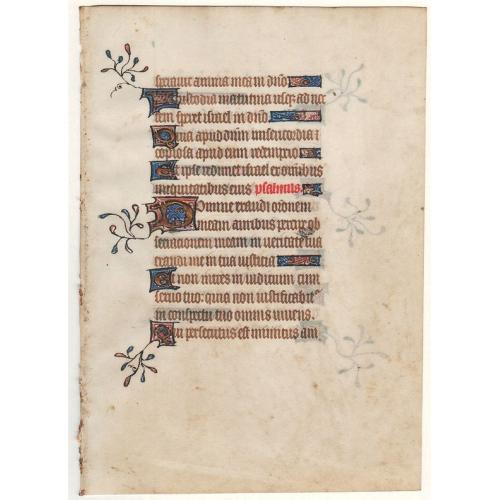 speravit anima mea in dño
A custodia matutina usq; ad noc
tem speret israel in dño
Quia apud dñm misericordia &
copiosa apud eum redemptio
Et ipse redimet israel ex omibus
iniquitatibus eius psalmus.
Domine exaudi orōnem
meam auribus percipe ob
secrationem meam in veritate tua
exaudi me in tua iusticia
Et non intres in iudicium cum
servo tuo: quia non iustificabit
in conspectu tuo omnis vivens.
Quia persecutus est inimicus aīm